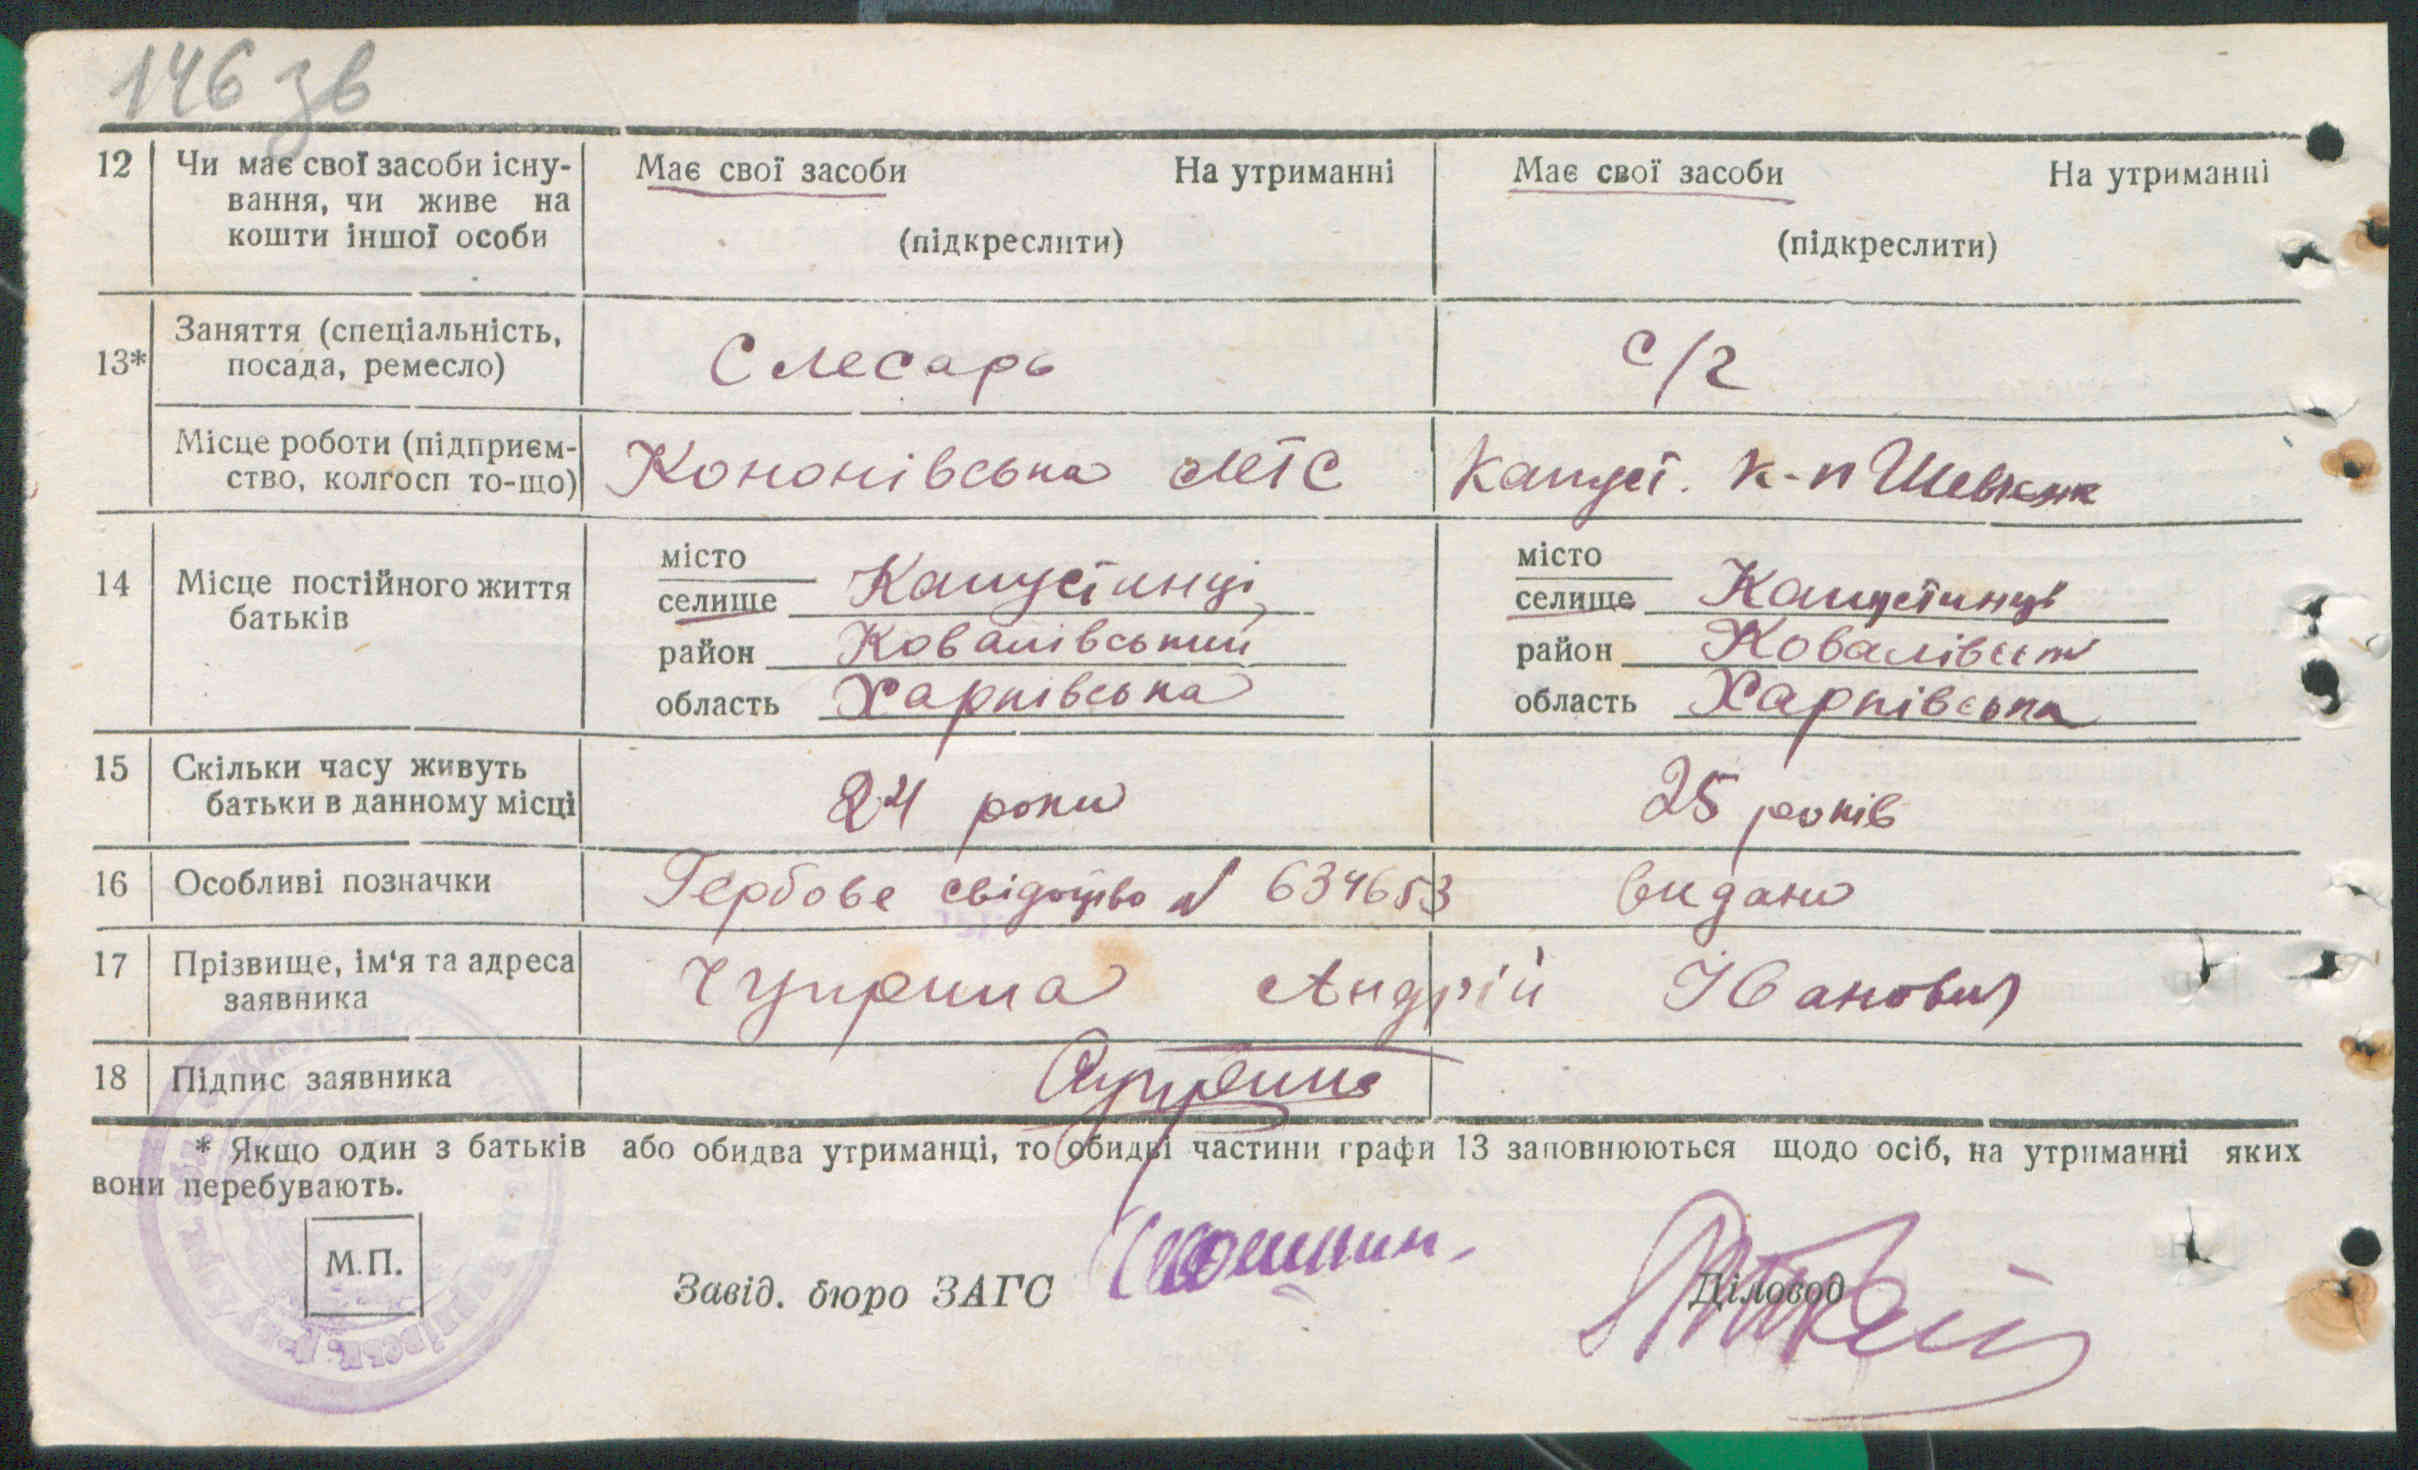 146 зв
12 Чи має свої засоби існу- Має свої засоби На утриманні Має свої засоби На утриманні
вання, чи живе на
кошти іншої особи (підкреслити) (підкреслити)
Заняття (спеціальність,
13* посада, ремесло) Слесарь с/г
Місце роботи (підприєм-
ство, колгосп то-що) Кононівська МТС Капуст. к-п
14 Місце постійного життя
батьків
місто
селище Капустинці
район Ковалівський
область Харківська
місто
селище Капустинці
район
область Харківська
15 Скільки часу живуть
батьки в данному місці 24 роки 25 років
16 Особливі позначки Гербове свідоцтво № 634653 видано
17 Прізвище, ім'я та адреса
заявника Чуприна Андрій Іванович
18 Підпис заявника Чуприна
* Якщо один з батьків або обидва утриманці, то обидві частини графи 13 заповнюються щодо осіб, на утриманні яких
вони перебувають.
М.П.
Завід. бюро ЗАГС Діловод